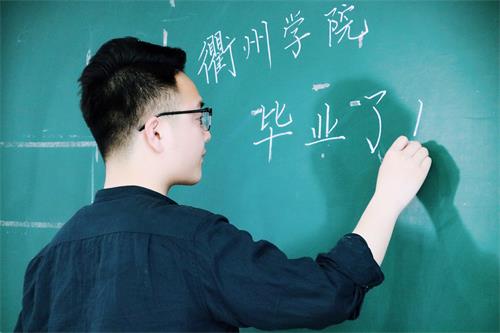 衢州学院
毕业了!